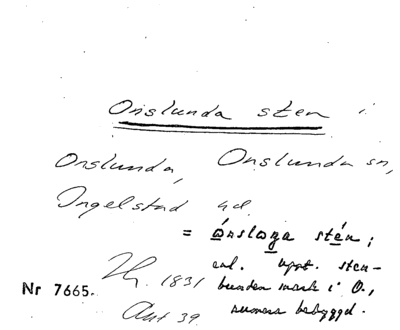 Onslunda sten i
Onslunda, Onslunda sn,
Ingelstad hd.
= ónsloga stén;
enl. uppt. sten-
Th. 1831 bunden mark i O.,
Nr 7665. numera bebyggd.
Aut 39.